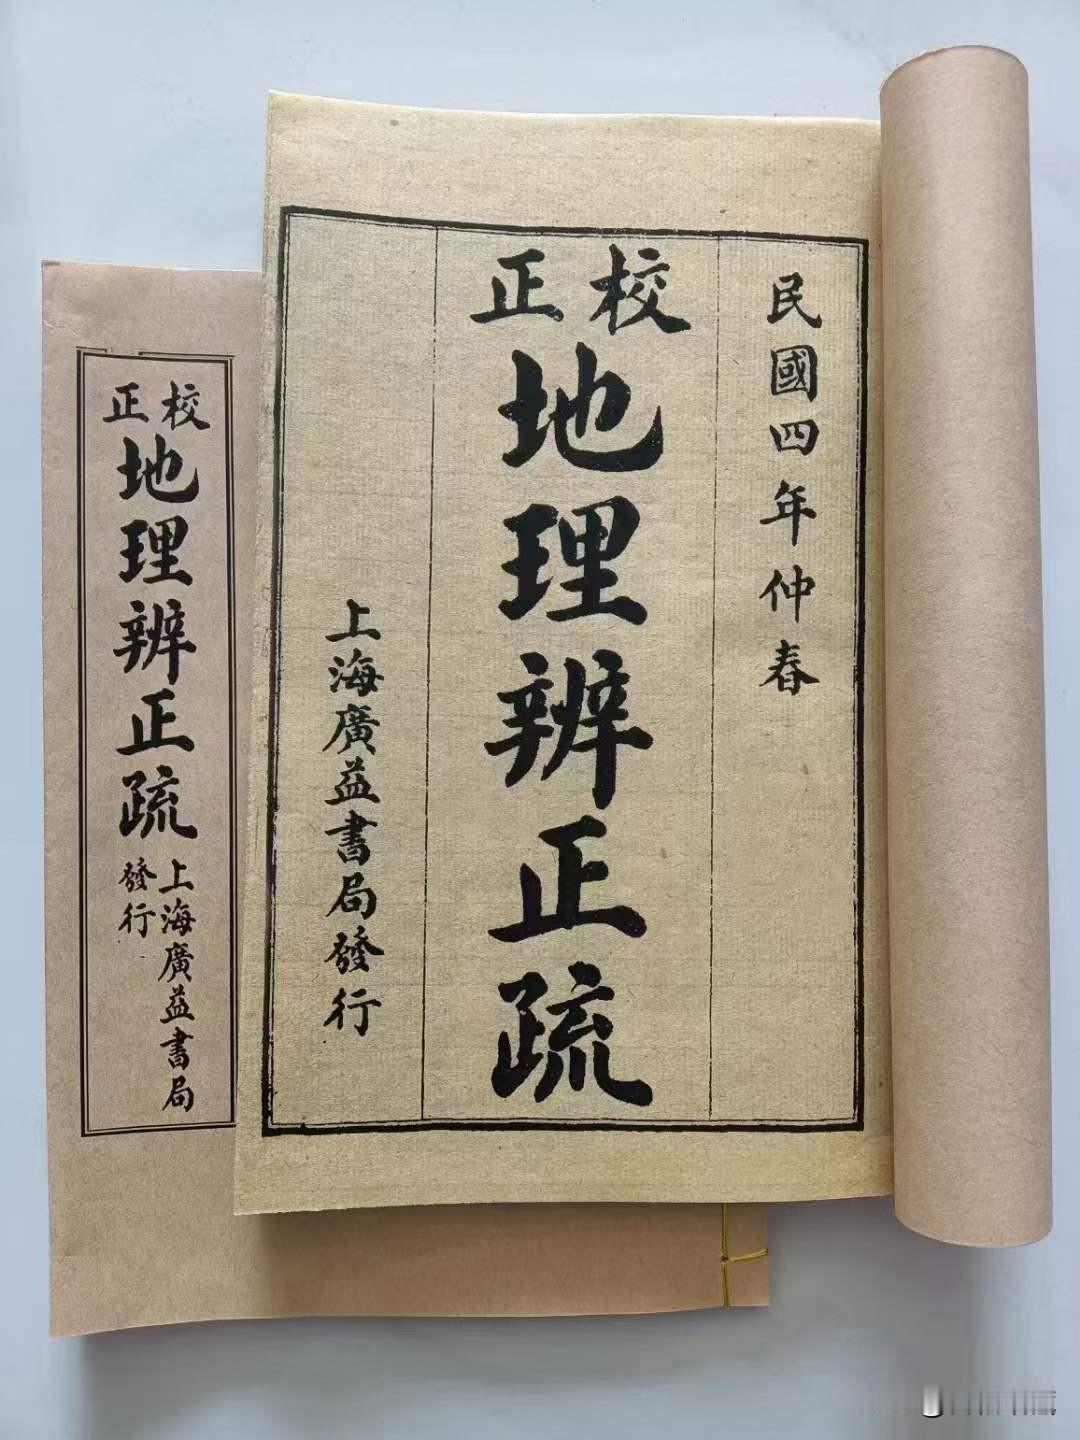 民國四年仲春
校正
地理辨正疏
上海廣益書局發行
校正
地理辨正疏
上海廣益書局
發行